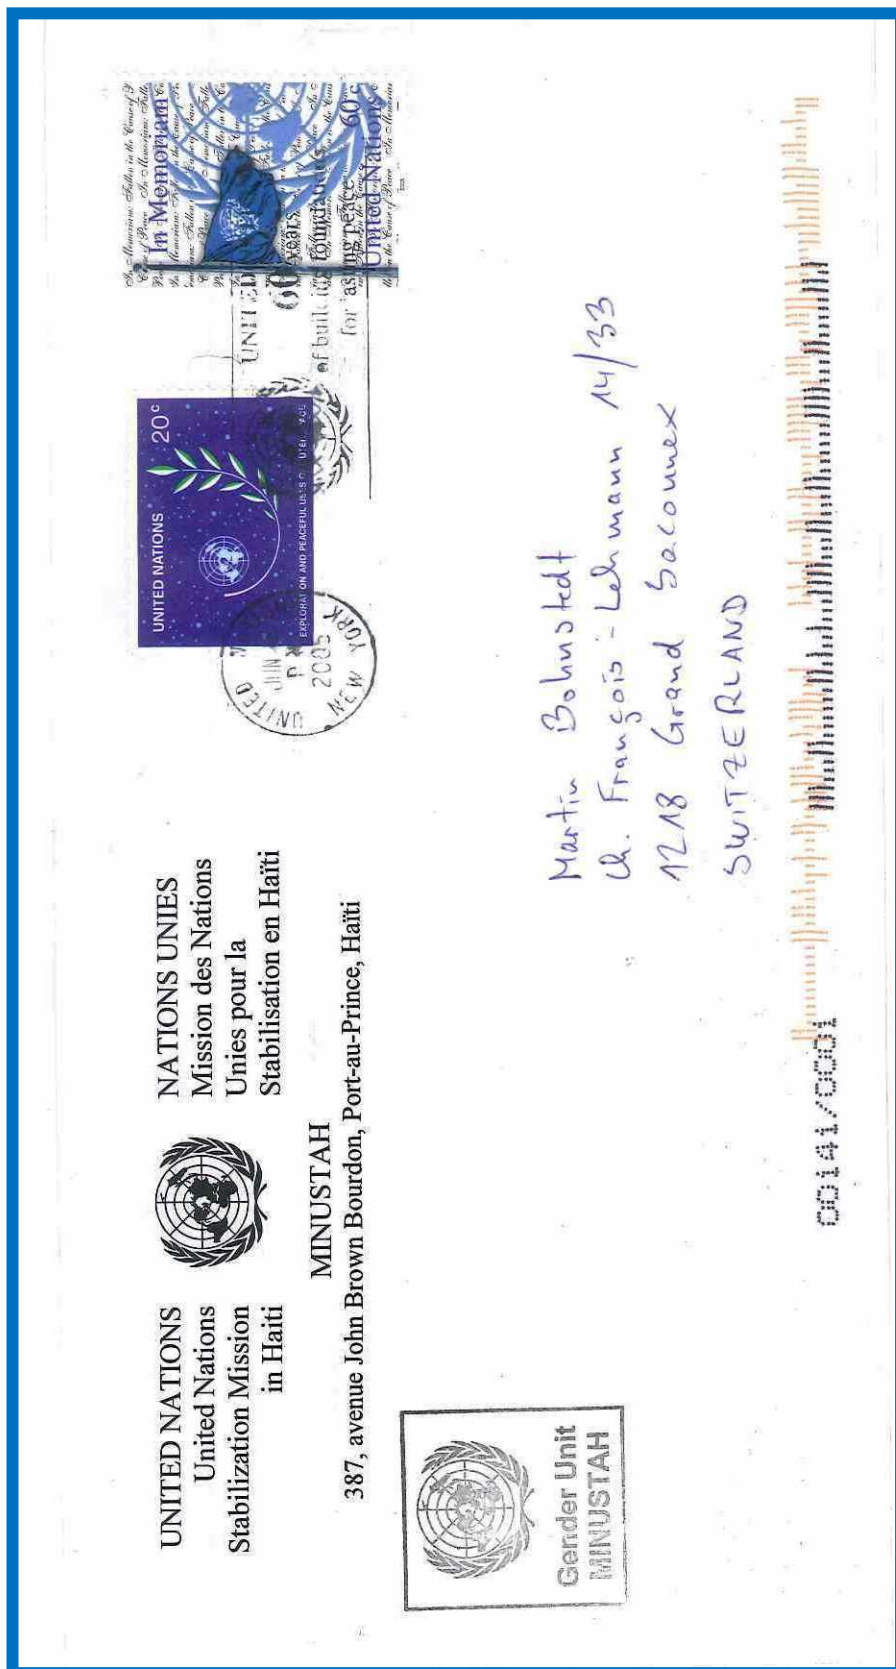 UNITED NATIONS
United Nations
Stabilization Mission
in Haiti
NATIONS UNIES
Mission des Nations
Unies pour la
Stabilisation en Haïti
MINUSTAH
387, avenue John Brown Bourdon, Port-au-Prince, Haïti
Gender Unit
MINUSTAH
UNITED
JUN
2005
NEW YORK
UNITED NATIONS
20c
EXPLORATION AND PEACEFUL USES OF OUTER SPACE
UNITED
60 years
of building foundations
for lasting peace
In Memoriam
60c
United Nations
Martin Bohnstedt
Ch. François-Lehmann 14/33
1218 Grand Saconnex
SWITZERLAND
00141/0001